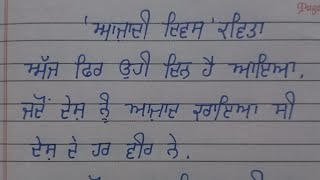 Page
'ਆਜ਼ਾਦੀ ਦਿਵਸ' ਕਵਿਤਾ
ਅੱਜ ਫਿਰ ਉਹੀ ਦਿਨ ਹੈ ਆਇਆ,
ਜਦੋਂ ਦੇਸ਼ ਨੂੰ ਆਜ਼ਾਦ ਕਰਾਇਆ ਸੀ
ਦੇਸ਼ ਦੇ ਹਰ ਵੀਰ ਨੇ.